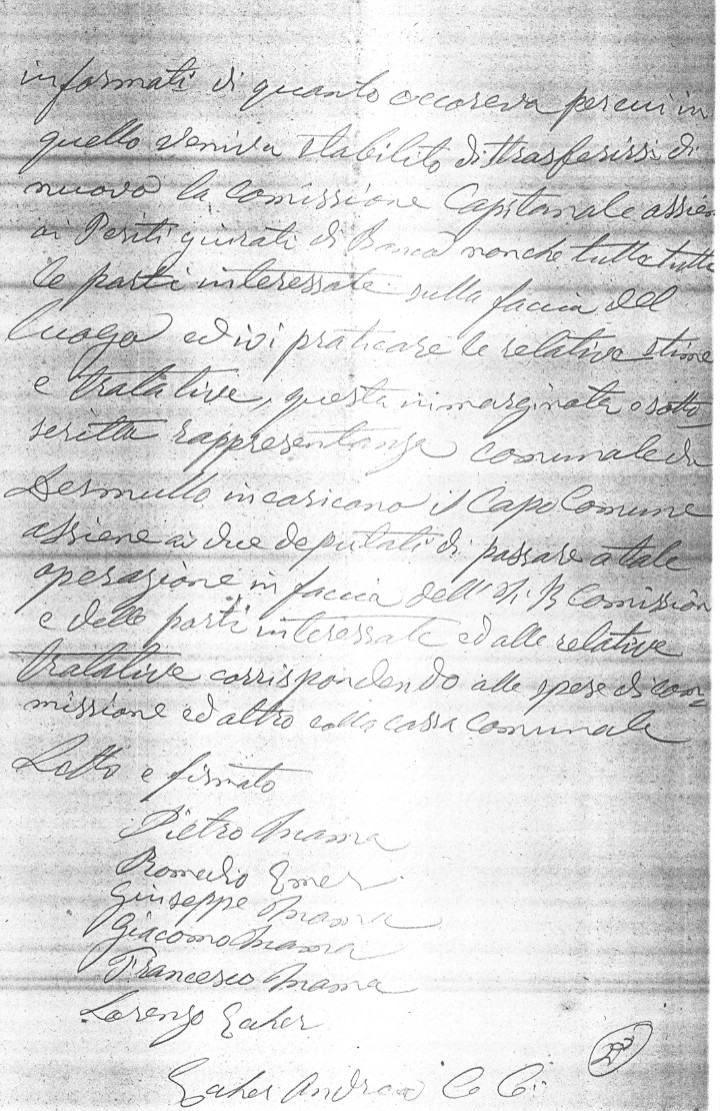 informati di quanto occoreva percui in
quello veniva stabilito di trasferirsi di
nuovo la comissione Capitanale assie
ai Periti giurati di Banca nonche tutte tutte
le parti interessate sulla faccia del
luogo ed ivi praticare le relative stime
e tratative, questa inmarginata e sotto
scritta rappresentanza comunale di
Desmullo incaricano il Capo Comune
assiene ai due deputati di passare a tale
operazione in faccia dell' Comission
e delle parti interessate ed alle relative
tratative corrispondendo alle spese di com
missione ed altro colla cassa comunale
Letto e firmato
Pietro Inama
Romedio Emer
Giuseppe Inama
Giacomo Inama
Francesco Inama
Lorenzo Eaher
Eaher Andrea C. C.: